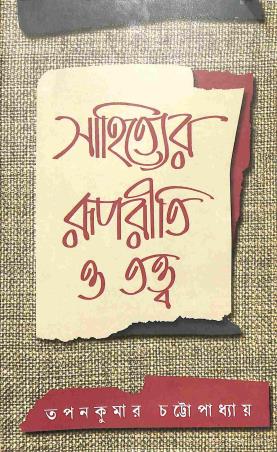 সাহিত্যের
রূপরীতি
ও তত্ত্ব
তপনকুমার চট্টোপাধ্যায়